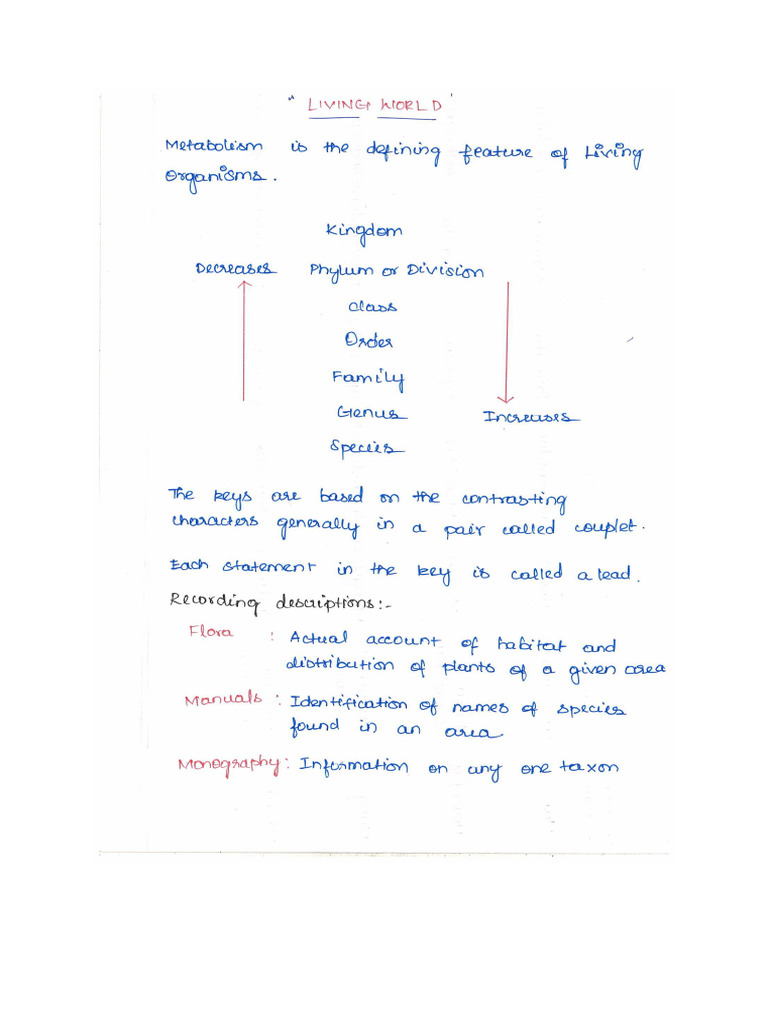 " LIVING WORLD '
Metabolism is the defining feature of Living
Organisms.
Kingdom
Decreases Phylum or Division
Class
Order
Family
Genus Increases
Species
The keys are based on the contrasting
characters generally in a pair called couplet.
Each statement in the key is called a lead.
Recording descriptions:-
Flora : Actual account of habitat and
distribution of plants of a given area
Manuals : Identification of names of species
found in an area
Monography : Information on any one taxon